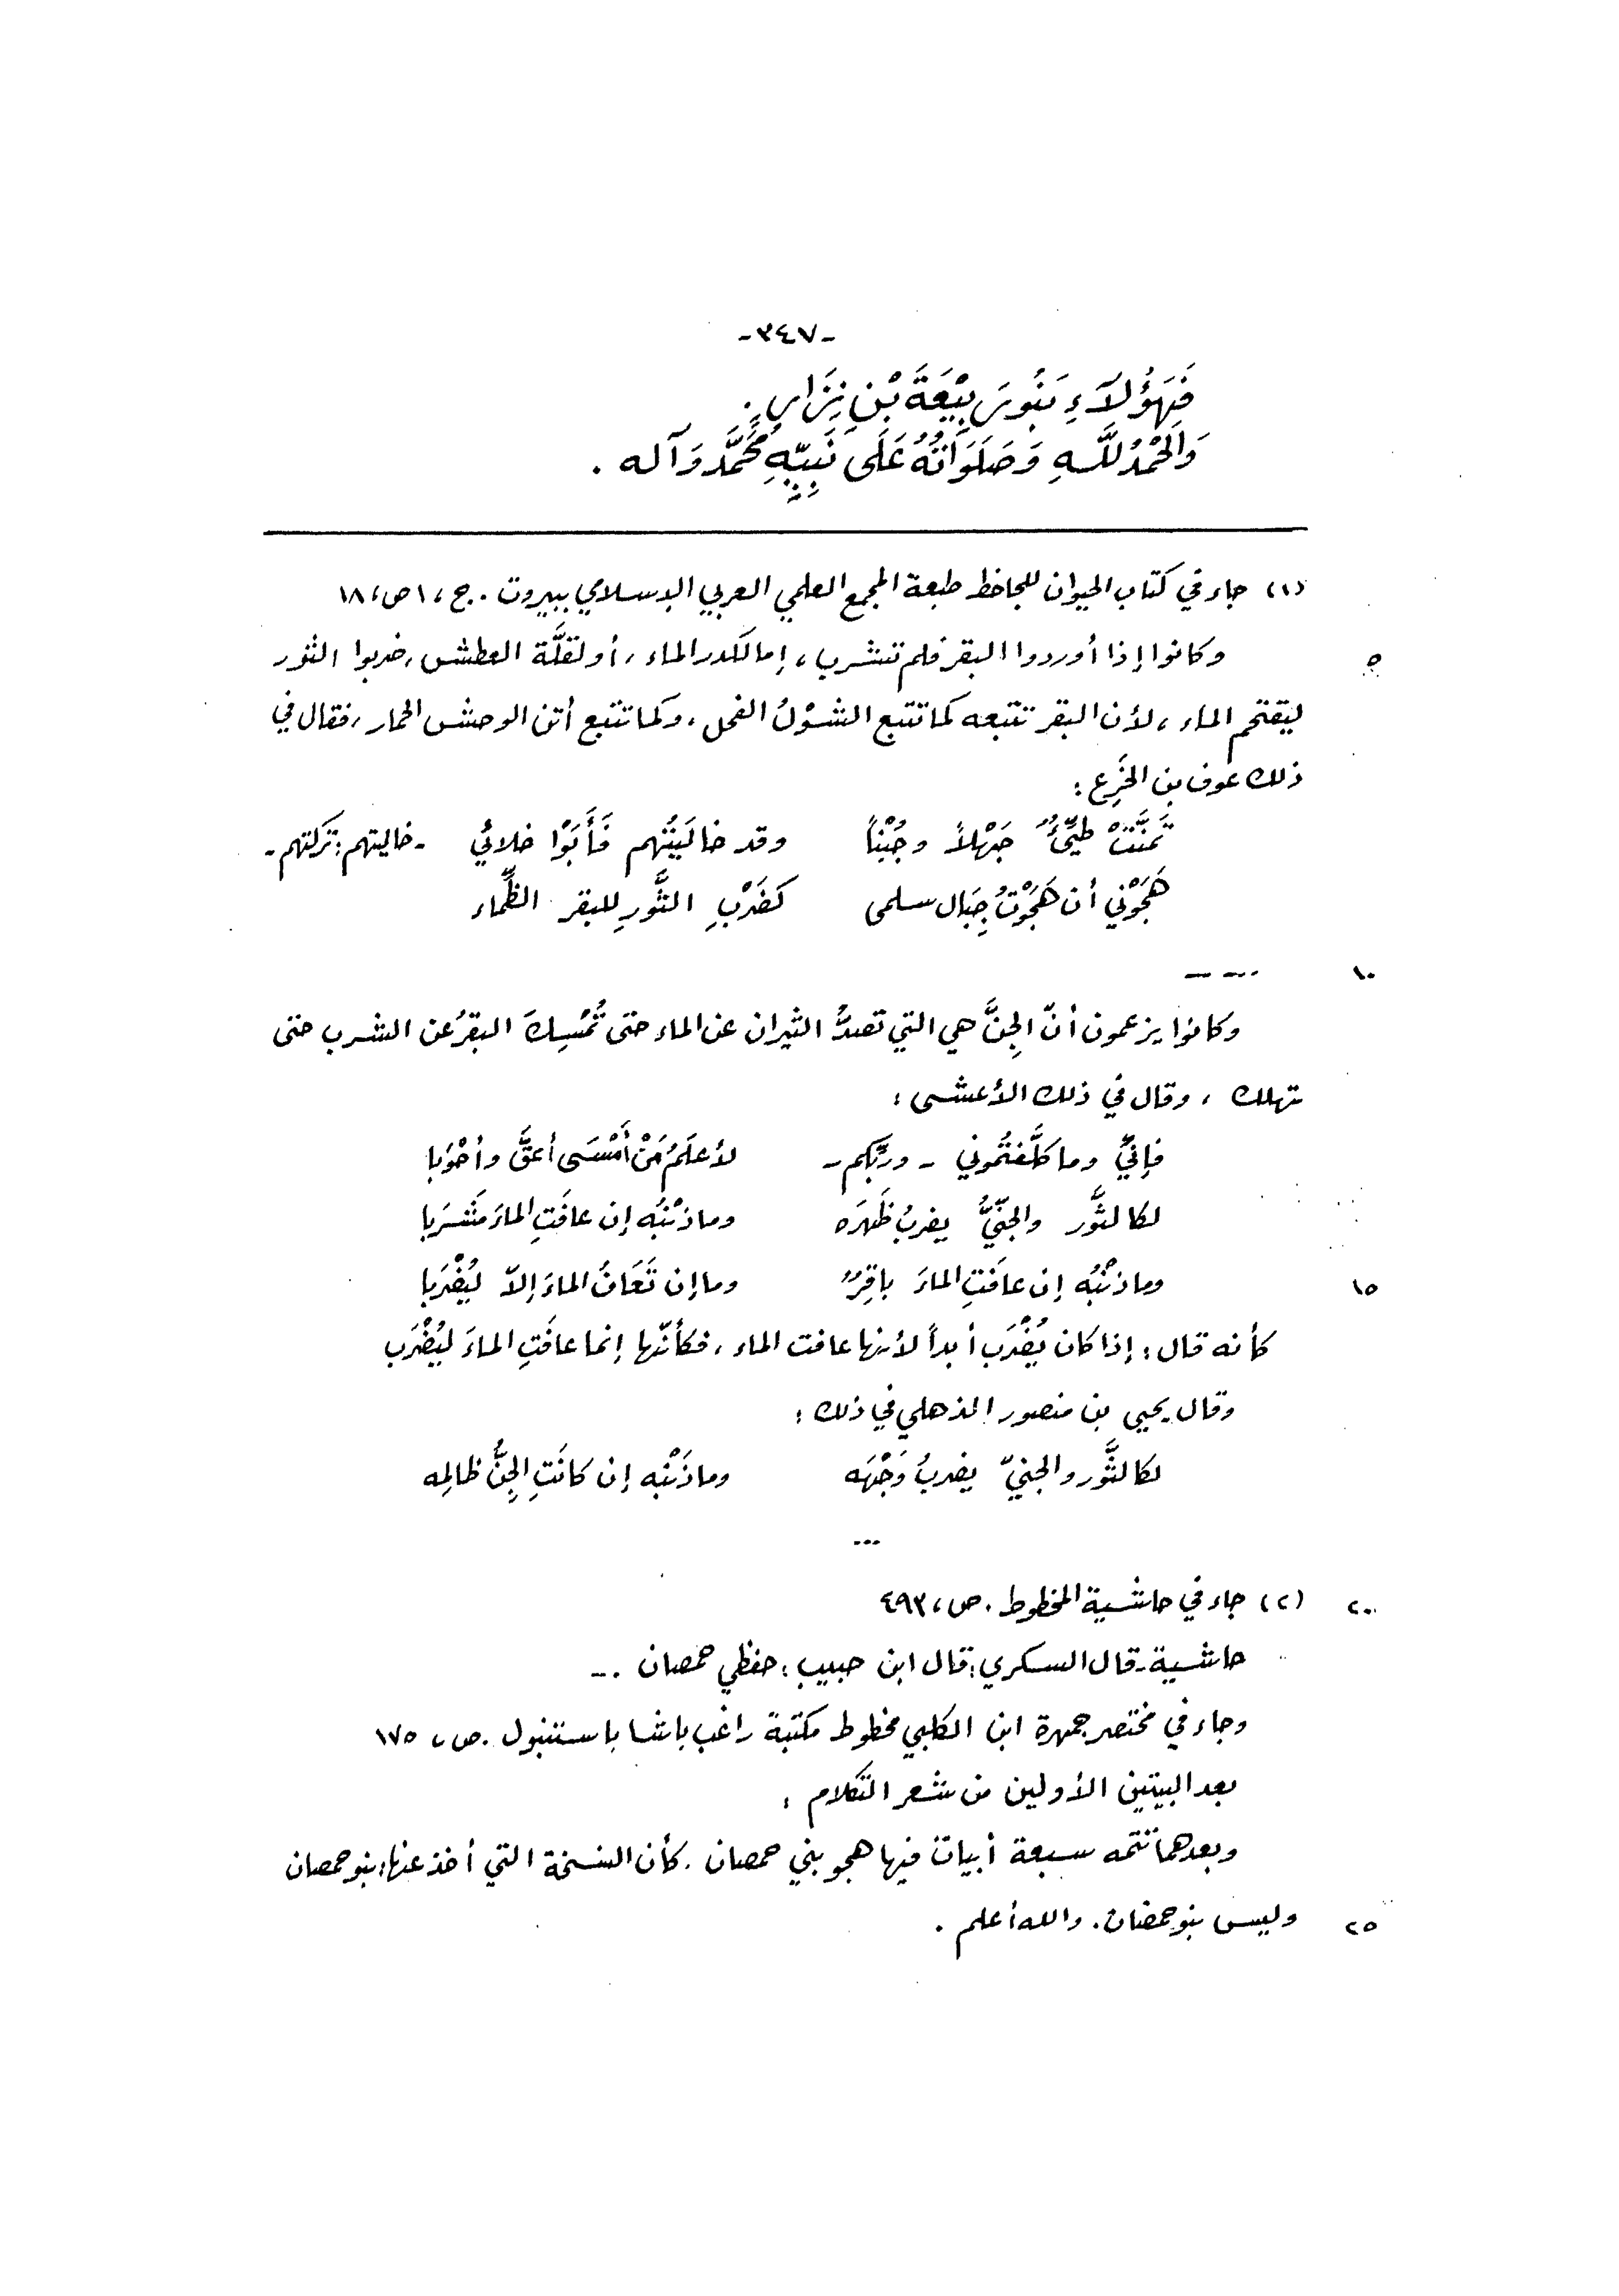 -٣٤٧-
فَهَؤُلَآءِ بَنُو رَبِيْعَةَ بْنِ نِزَارٍ.
وَالْحَمْدُ للَّهِ وَصَلَوَاتُهُ عَلَى نَبِيِّهِ مُحَمَّدٍ وَآله .
(١) جاء في كتاب الحيوان للجاحظ طبعة المجمع العلمي العربي الإسلامي ببيروت . ج، ١ ص، ١٨
٥ وكانوا إذا أوردوا البقر فلم تشرب، إما لكدر الماء، أو لقلَّة العطش، ضربوا الثور
ليقتحم الماء، لأن البقر تتبعه كما تتبع الشوْلُ الفحل، وكما تتبع أتن الوحش الحمار، فقال في
ذلك عوف بن الخَرِع :
تَمَنَّتْ طيّءٌ جَهْلاً وجُبْناً وقد خاليتُهم فَأَبَوْا خلائي -خاليتهم: تركتهم-
هَجَوْني أن هَجَوْتُ جِبَال سلمى كَضَرْبِ الثَّورِ للبقر الظِّماء
١٠ ---
وكانوا يزعمون أنّ الجِنَّ هي التي تصدُّ الثيران عن الماء حتى تُمْسِكَ البقرُ عن الشرب حتى
تهلك ، وقال في ذلك الأعشى :
فإنيِّ وما كلَّفتُموني - وربّكم- لأعلَمُ مَنْ أَمْسَى أعقَّ وأحْوَبا
لكالثَّور والجنّيُّ يضربُ ظَهرَه وما ذنْبُه إن عافَتِ الماءَ مَشرَبا
١٥ وما ذنْبُه إن عافَتِ الماءَ باقِرٌ وما إن تَعَافُ الماءَ إلاّ ليُضْرَبا
كأنه قال : إذا كان يُضْرَب أبداً لأنها عافت الماء، فكأنّها إنما عافَتِ الماءَ ليُضْرَب
وقال يحيى بن منصور الذهلي في ذلك :
لكالثَّور والجنيّ يضربُ وَجْهَه وما ذَنْبُه إن كانَتِ الجِنُّ ظالِمه
...
٢٠ (٢) جاء في حاشية المخطوط . ص، ٤٩٣
حاشية- قال السكري : قال ابن حبيب : حفظي حمصان .-
وجاء في مختصر جمهرة ابن الكلبي مخطوط مكتبة راغب باشا باستنبول . ص، ١٧٥
بعد البيتين الأولين من شعر التكلام :
وبعدهما تتمه سبعة أبيات فيها هجو بني حمصان . كأن النسخة التي أخذ عنها: بنو حمصان
٢٥ وليس بنو حمضان . والله أعلم .